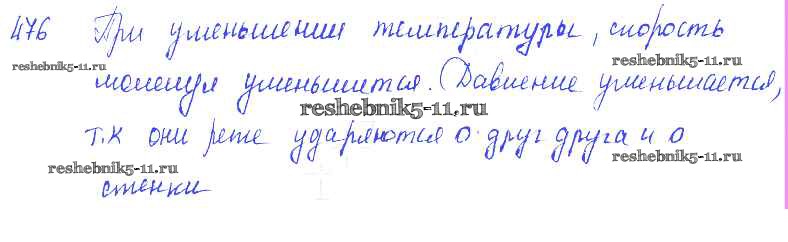 476 При уменьшении температуры, скорость
reshebnik5-11.ru
reshebnik5-11.ru
молекул уменьшится. Давление уменьшается,
reshebnik5-11.ru
т.к они реже ударяются о друг друга и о
reshebnik5-11.ru
reshebnik5-11.ru
стенки